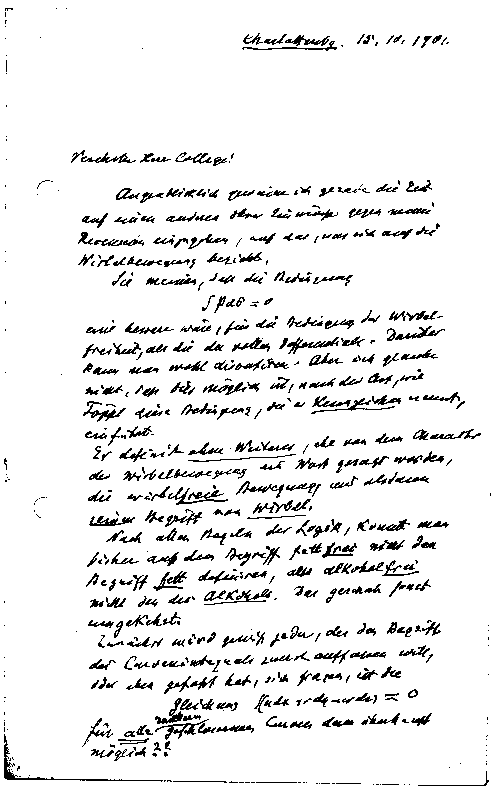 Charlottenbg. 15. 10. 1901.
Verehrter Herr College!
Augenblicklich gewinne ich gerade die Zeit
auf einen andren Ihrer Einwürfe gegen meine
Recension einzugehen, auf das, was sich auf die
Wirbelbewegung bezieht.
Sie meinen, daß die Bedingung
∫ P dσ = 0
eine bessere wäre, für die Bedingung der Wirbel-
freiheit, als die des vollen Differentials. Darüber
kann man wohl disputieren. Aber ich glaube
nicht, daß dies möglich ist, nach der Art, wie
Föppl diese Bedingung, die er Kennzeichen nennt,
einführt.
Er definirt ohne Weiteres, ehe von dem Charakter
der Wirbelbewegung ein Wort gesagt worden,
die wirbelfreie Bewegung und alsdann
seinen Begriff von Wirbel.
Nach allen Regeln der Logik, konnte man
bisher aus dem Begriff fettfrei nicht den
Begriff fett definiren, aus alkoholfrei
nicht den des Alkohols. Das geschah sonst
umgekehrt.
Zunächst wird gewiß jeder, der den Begriff
des Curvenintegrals zuerst auffassen will,
oder eben gefaßt hat, sich fragen, ist die
Gleichung ∫(udx+vdy+wdz) = 0
für alle geschlossenen Curven denn überhaupt
möglich??